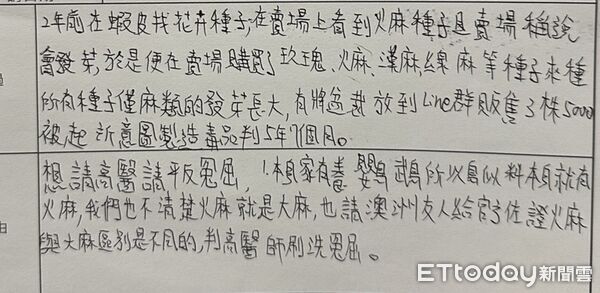 2年前在蝦皮找花卉種子,在賣場上看到火麻種子且賣場種說
會發芽,於是便在賣場購買了玫瑰、火麻、漢麻線麻等種子來種
所有種子僅麻類的發芽長大,有將盆栽放到Line群販售3株5000
被起訴意圖製造毒品判5年7個月。
想請高醫請平反冤屈,1.本家有養鸚鵡所以鳥飼料本身就有
火麻,我們也不清楚火麻就是大麻,也請澳洲友人給官方佐證火麻
與大麻區別是不同的,判高醫師刷洗冤屈。
由
ETtoday新聞雲